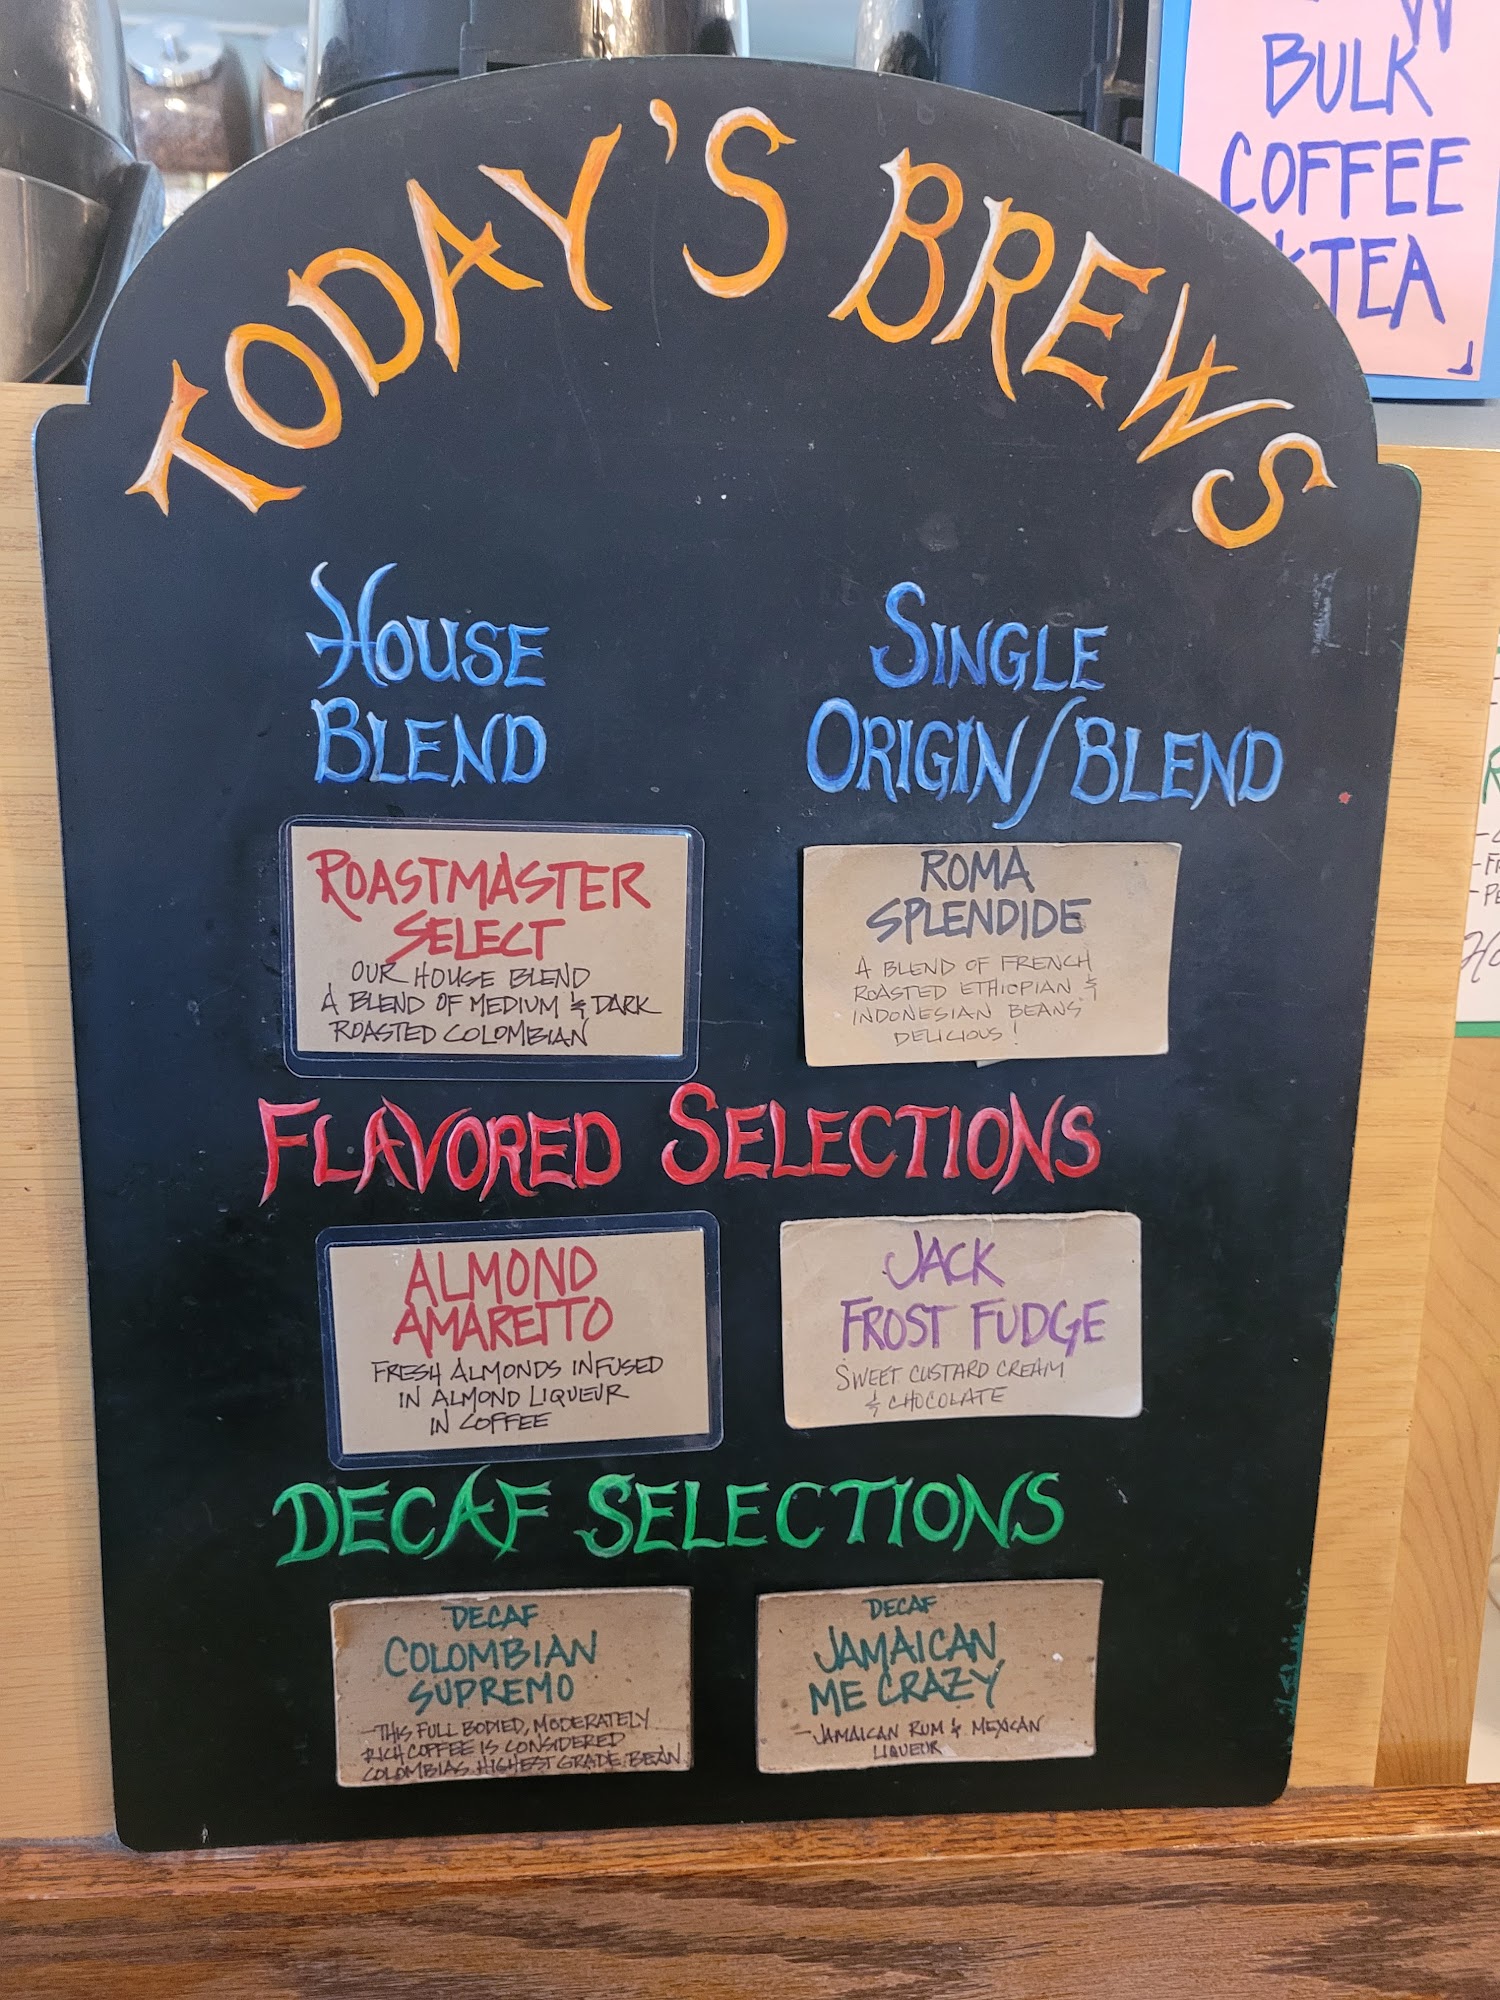 TODAY'S BREWS
HOUSE
BLEND
ROASTMASTER
SELECT
OUR HOUSE BLEND
A BLEND OF MEDIUM & DARK
ROASTED COLOMBIAN
SINGLE
ORIGIN/BLEND
ROMA
SPLENDIDE
A BLEND OF FRENCH
ROASTED ETHIOPIAN &
INDONESIAN BEANS
DELICIOUS!
FLAVORED SELECTIONS
ALMOND
AMARETTO
FRESH ALMONDS INFUSED
IN ALMOND LIQUEUR
IN COFFEE
JACK
FROST FUDGE
SWEET CUSTARD CREAM
& CHOCOLATE
DECAF SELECTIONS
DECAF
COLOMBIAN
SUPREMO
-THIS FULL BODIED, MODERATELY
RICH COFFEE IS CONSIDERED
COLOMBIAS HIGHEST GRADE BEAN
DECAF
JAMAICAN
ME CRAZY
-JAMAICAN RUM & MEXICAN
LIQUEUR
BULK
COFFEE
& TEA